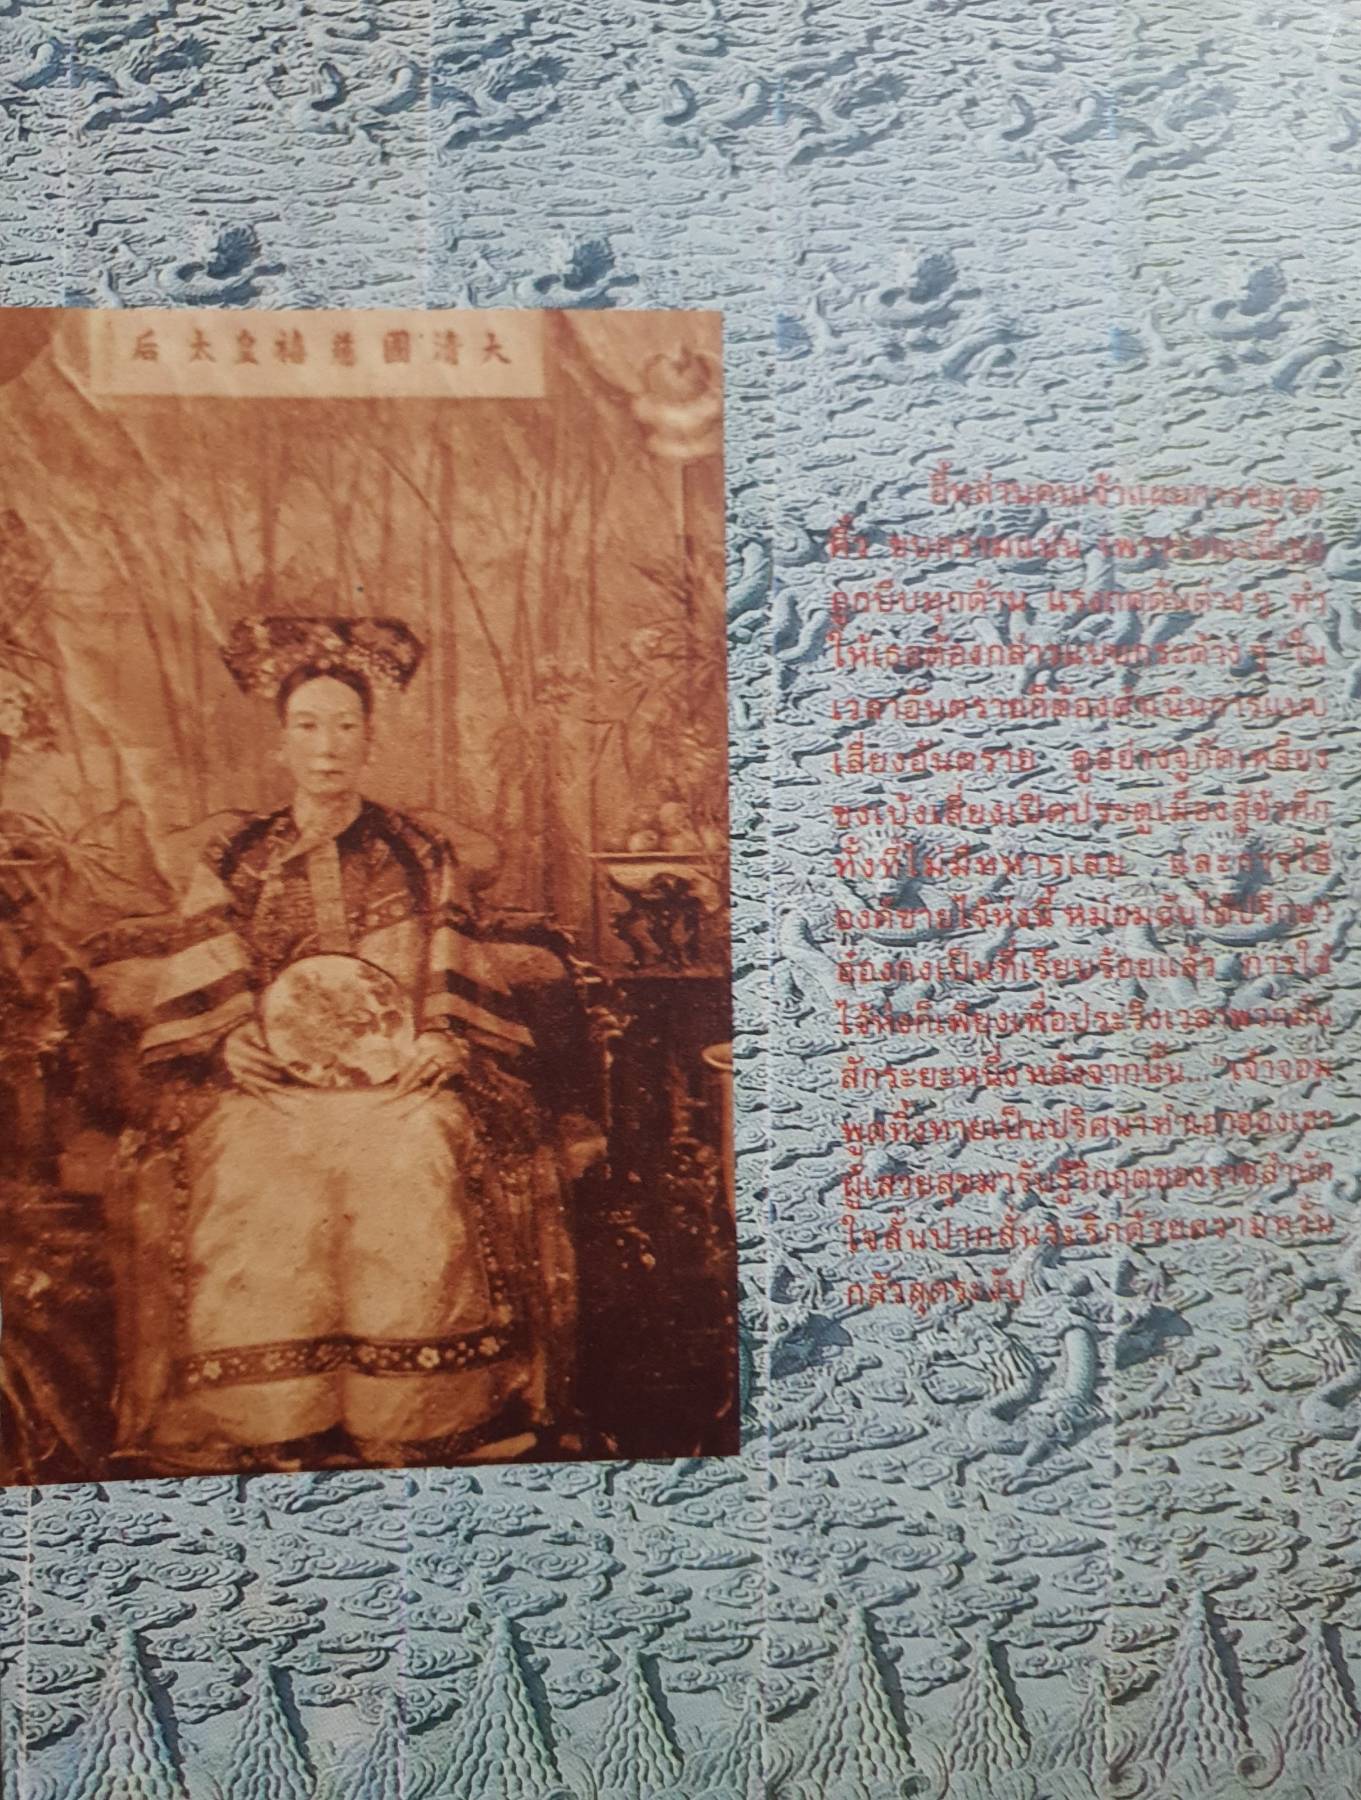 后太皇禧慈國清大
อี้หลานคนเจ้าแผนการขมวด
คิ้ว ขบกรามแน่น เพราะขณะนี้เธอ
ถูกบีบทุกด้าน แรงกดดันต่าง ๆ ทำ
ให้เธอต้องกล่าวแบบกระด้าง ๆ "ใน
เวลาอันตรายก็ต้องดำเนินการแบบ
เสี่ยงอันตราย ดูอย่างจูกัดเหลียง
ขงเบ้งเสี่ยงเปิดประตูเมืองสู้ข้าศึก
ทั้งที่ไม่มีทหารเลย และการใช้
องค์ชายไจ้หงนี้ หม่อมฉันได้ปรึกษา
ฮ่องกงเป็นที่เรียบร้อยแล้ว การใช้
ไจ้หงก็เพียงเพื่อประวิงเวลาพวกมัน
สักระยะหนึ่ง หลังจากนั้น..." เจ้าจอม
พูดทิ้งท้ายเป็นปริศนา ทำเอาฮองเฮา
ผู้เสวยสุขมารับรู้วิกฤตของราชสำนัก
ใจสั่นปากสั่นระริกด้วยความหวั่น
กลัวสุดระงับ